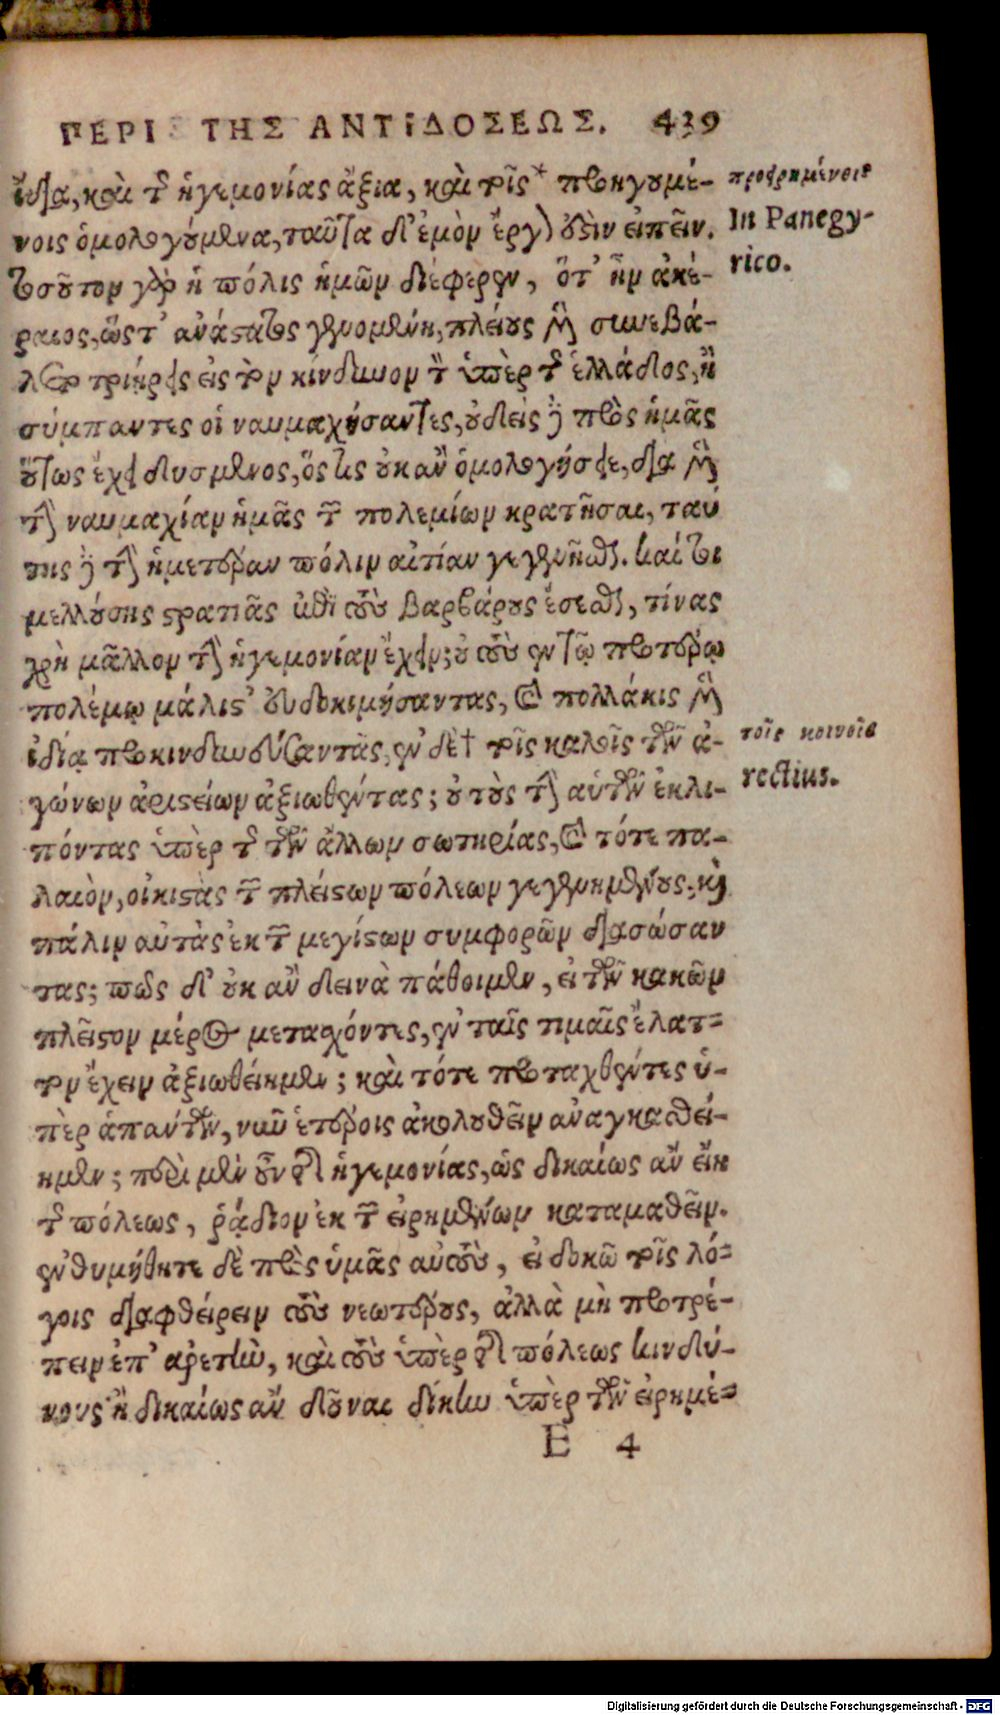 ΠΕΡΙ ΤΗΣ ΑΝΤΙΔΟΣΕΩΣ. 439
καὶ τῆς ἡγεμονίας ἄξια, καὶ τοῖς* προηγουμέ-
προειρημένοις
νοις ὁμολογούμενα, ταῦτα δ' ἐμὸν ἔργον ἐστὶν εἰπεῖν.
In Panegy-
rico.
τοσοῦτον γὰρ ἡ πόλις ἡμῶν διέφερεν, ὅτ' ἦν ἀκέ-
ραιος, ὥστ' ἀνάστατος γενομένη, πλείους μὲν συνεβά-
λετο τριήρεις εἰς τὸν κίνδυνον τὸν ὑπὲρ τῆς ἑλλάδος, ἢ
σύμπαντες οἱ ναυμαχήσαντες, οὐδεὶς δὲ πρὸς ἡμᾶς
οὕτως ἔχει δυσμενῶς, ὅς τις οὐκ ἂν ὁμολογήσειε, διὰ μὲν
τὴν ναυμαχίαν ἡμᾶς τῶν πολεμίων κρατῆσαι, ταύ
της δὲ τὴν ἡμετέραν πόλιν αἰτίαν γεγενῆσθαι. καί τοι
μελλούσης στρατιᾶς ἐπὶ τοὺς βαρβάρους ἔσεσθαι, τίνας
χρὴ μᾶλλον τὴν ἡγεμονίαν ἔχειν; οὐ τοὺς ἐν τῷ προτέρῳ
πολέμῳ μάλιστ' εὐδοκιμήσαντας, καὶ πολλάκις μὲν
ἰδίᾳ προκινδυνεύσαντας, ἐν δὲ† τοῖς καλοῖς τῶν ἀ-
τοῖς κοινοῖς
rectius.
γώνων ἀριστείων ἀξιωθέντας; οὐ τοὺς τὴν αὑτῶν ἐκλι-
πόντας ὑπὲρ τῆς τῶν ἄλλων σωτηρίας, καὶ τότε πα-
λαιὸν, οἰκιστὰς τῶν πλείστων πόλεων γεγενημένους, καὶ
πάλιν αὐτὰς ἐκ τῶν μεγίστων συμφορῶν διασώσαν
τας; πῶς δ' οὐκ ἂν δεινὰ πάθοιμεν, εἰ τῶν κακῶν
πλεῖστον μέρος μετασχόντες, ἐν ταῖς τιμαῖς ἔλατ-
τον ἔχειν ἀξιωθείημεν; καὶ τότε προταχθέντες ὑ-
πὲρ ἁπάντων, νῦν ἑτέροις ἀκολουθεῖν ἀναγκασθεί-
ημεν; περὶ μὲν οὖν τῆς ἡγεμονίας, ὡς δικαίως ἂν εἴη
τῆς πόλεως, ῥᾴδιον ἐκ τῶν εἰρημένων καταμαθεῖν.
ἐνθυμήθητε δὲ πρὸς ὑμᾶς αὐτοὺς, εἰ δοκῶ τοῖς λό-
γοις διαφθείρειν τοὺς νεωτέρους, ἀλλὰ μὴ προτρέ-
πειν ἐπ' ἀρετὴν, καὶ τοὺς ὑπὲρ τῆς πόλεως κινδύ-
νους ἢ δικαίως ἂν δοῦναι δίκην ὑπὲρ τῶν εἰρημέ-
E 4
Digitalisierung gefördert durch die Deutsche Forschungsgemeinschaft - DFG